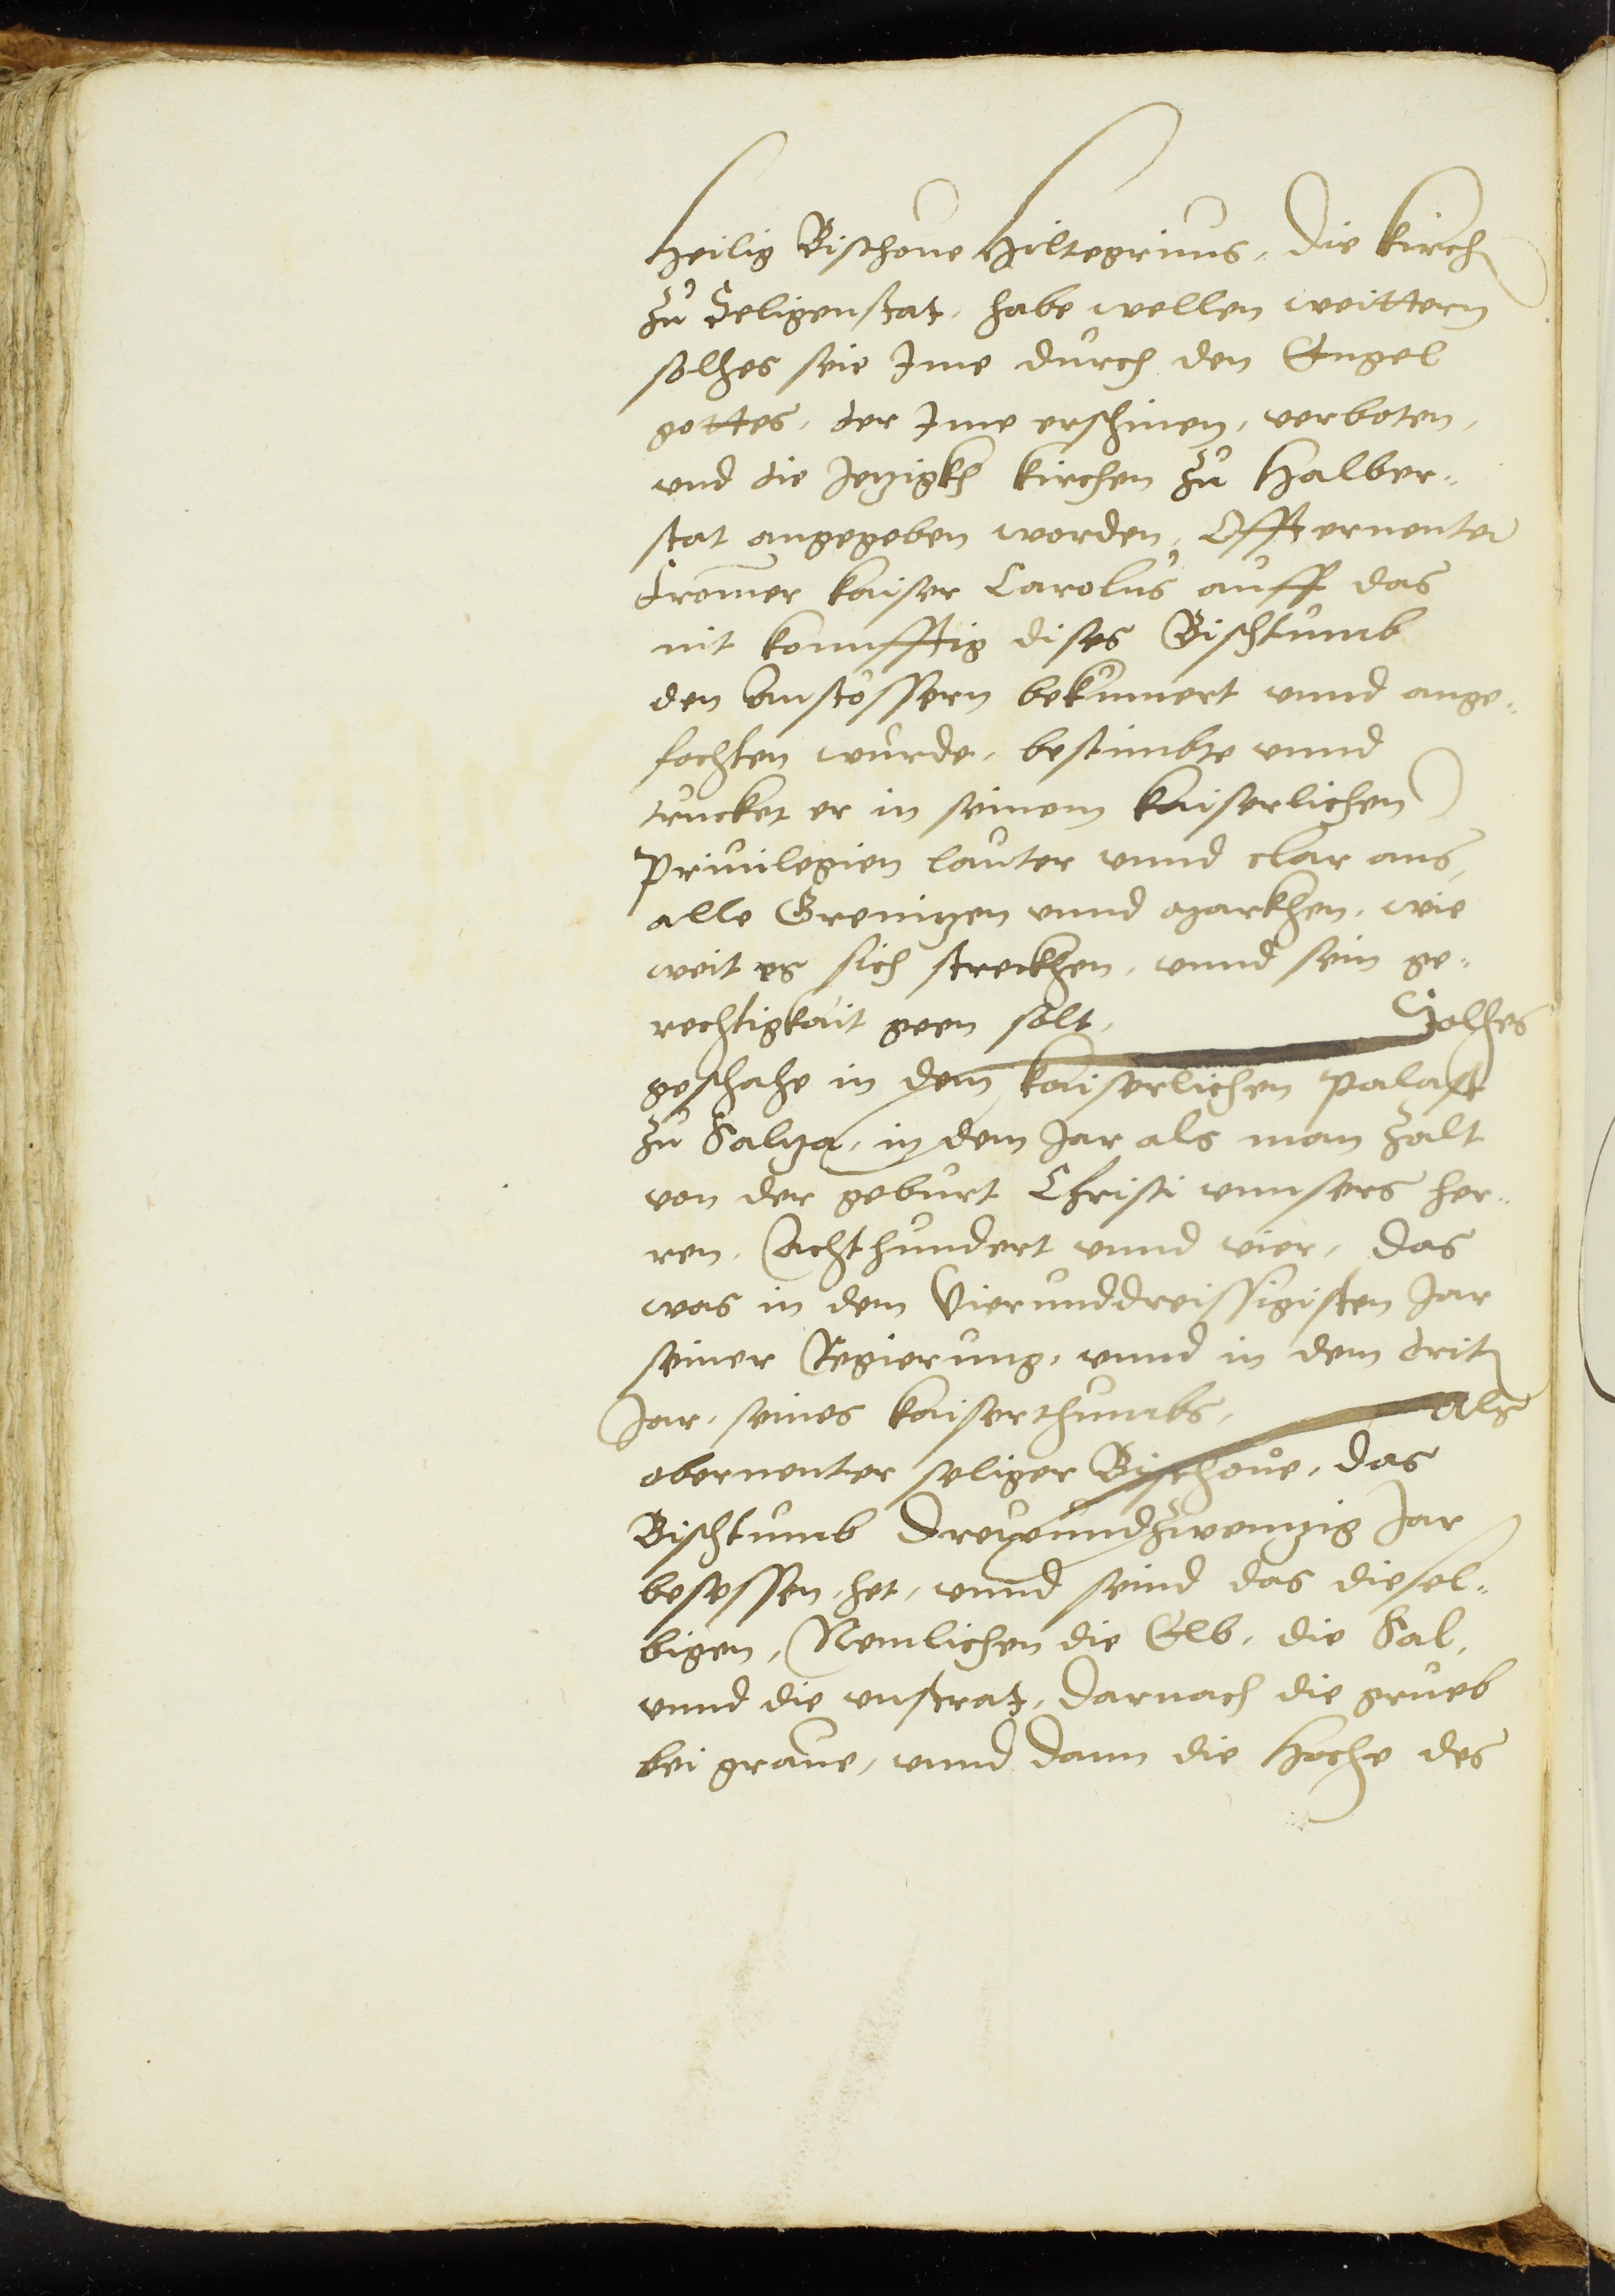 heilig Bischoue Hiltegrinus, die kirch
zu Seligenstat, habe wellen weittern
solhes seie Ime durch den Engel
gottes, der Ime erschinen, verboten,
vnd die Jezigkh kirchen zu Halber-
stat angegeben worden, Offternenter
fromer kaiser Carolus auff das
nit konnfftig dises Bischtumb
den Anstossern bekumert vnnd ange-
fochten wurde, bestimbte vnnd
trucket er in seinem kaiserlichen
Priuilegien lauter vnnd clar aus,
alle Grenitzen vnnd Markhen, wie
weit es sich streckhen, vnnd sein ge-
rechtigkait geen solt, Solhes
geschahe in dem kaiserlichen palast
zu Saltza, in dem Jar als man zalt
von der geburt Christi vnnsers her-
ren, Achthundert vnnd vier, das
was in dem Vierunddreissigisten Jar
seiner Regierung, vnnd in dem drit
Jar, seines kaiserthumbs, Als
obernenter seliger Bischoue, das
Bischtumb dreyvundzwenzig Jar
besessen het, vnnd seind das diesel-
bigen, Nemlichen die Elb, die Sal,
vnnd die vnstrat, darnach die grueb
bei graue, vnnd dann die Hoche des